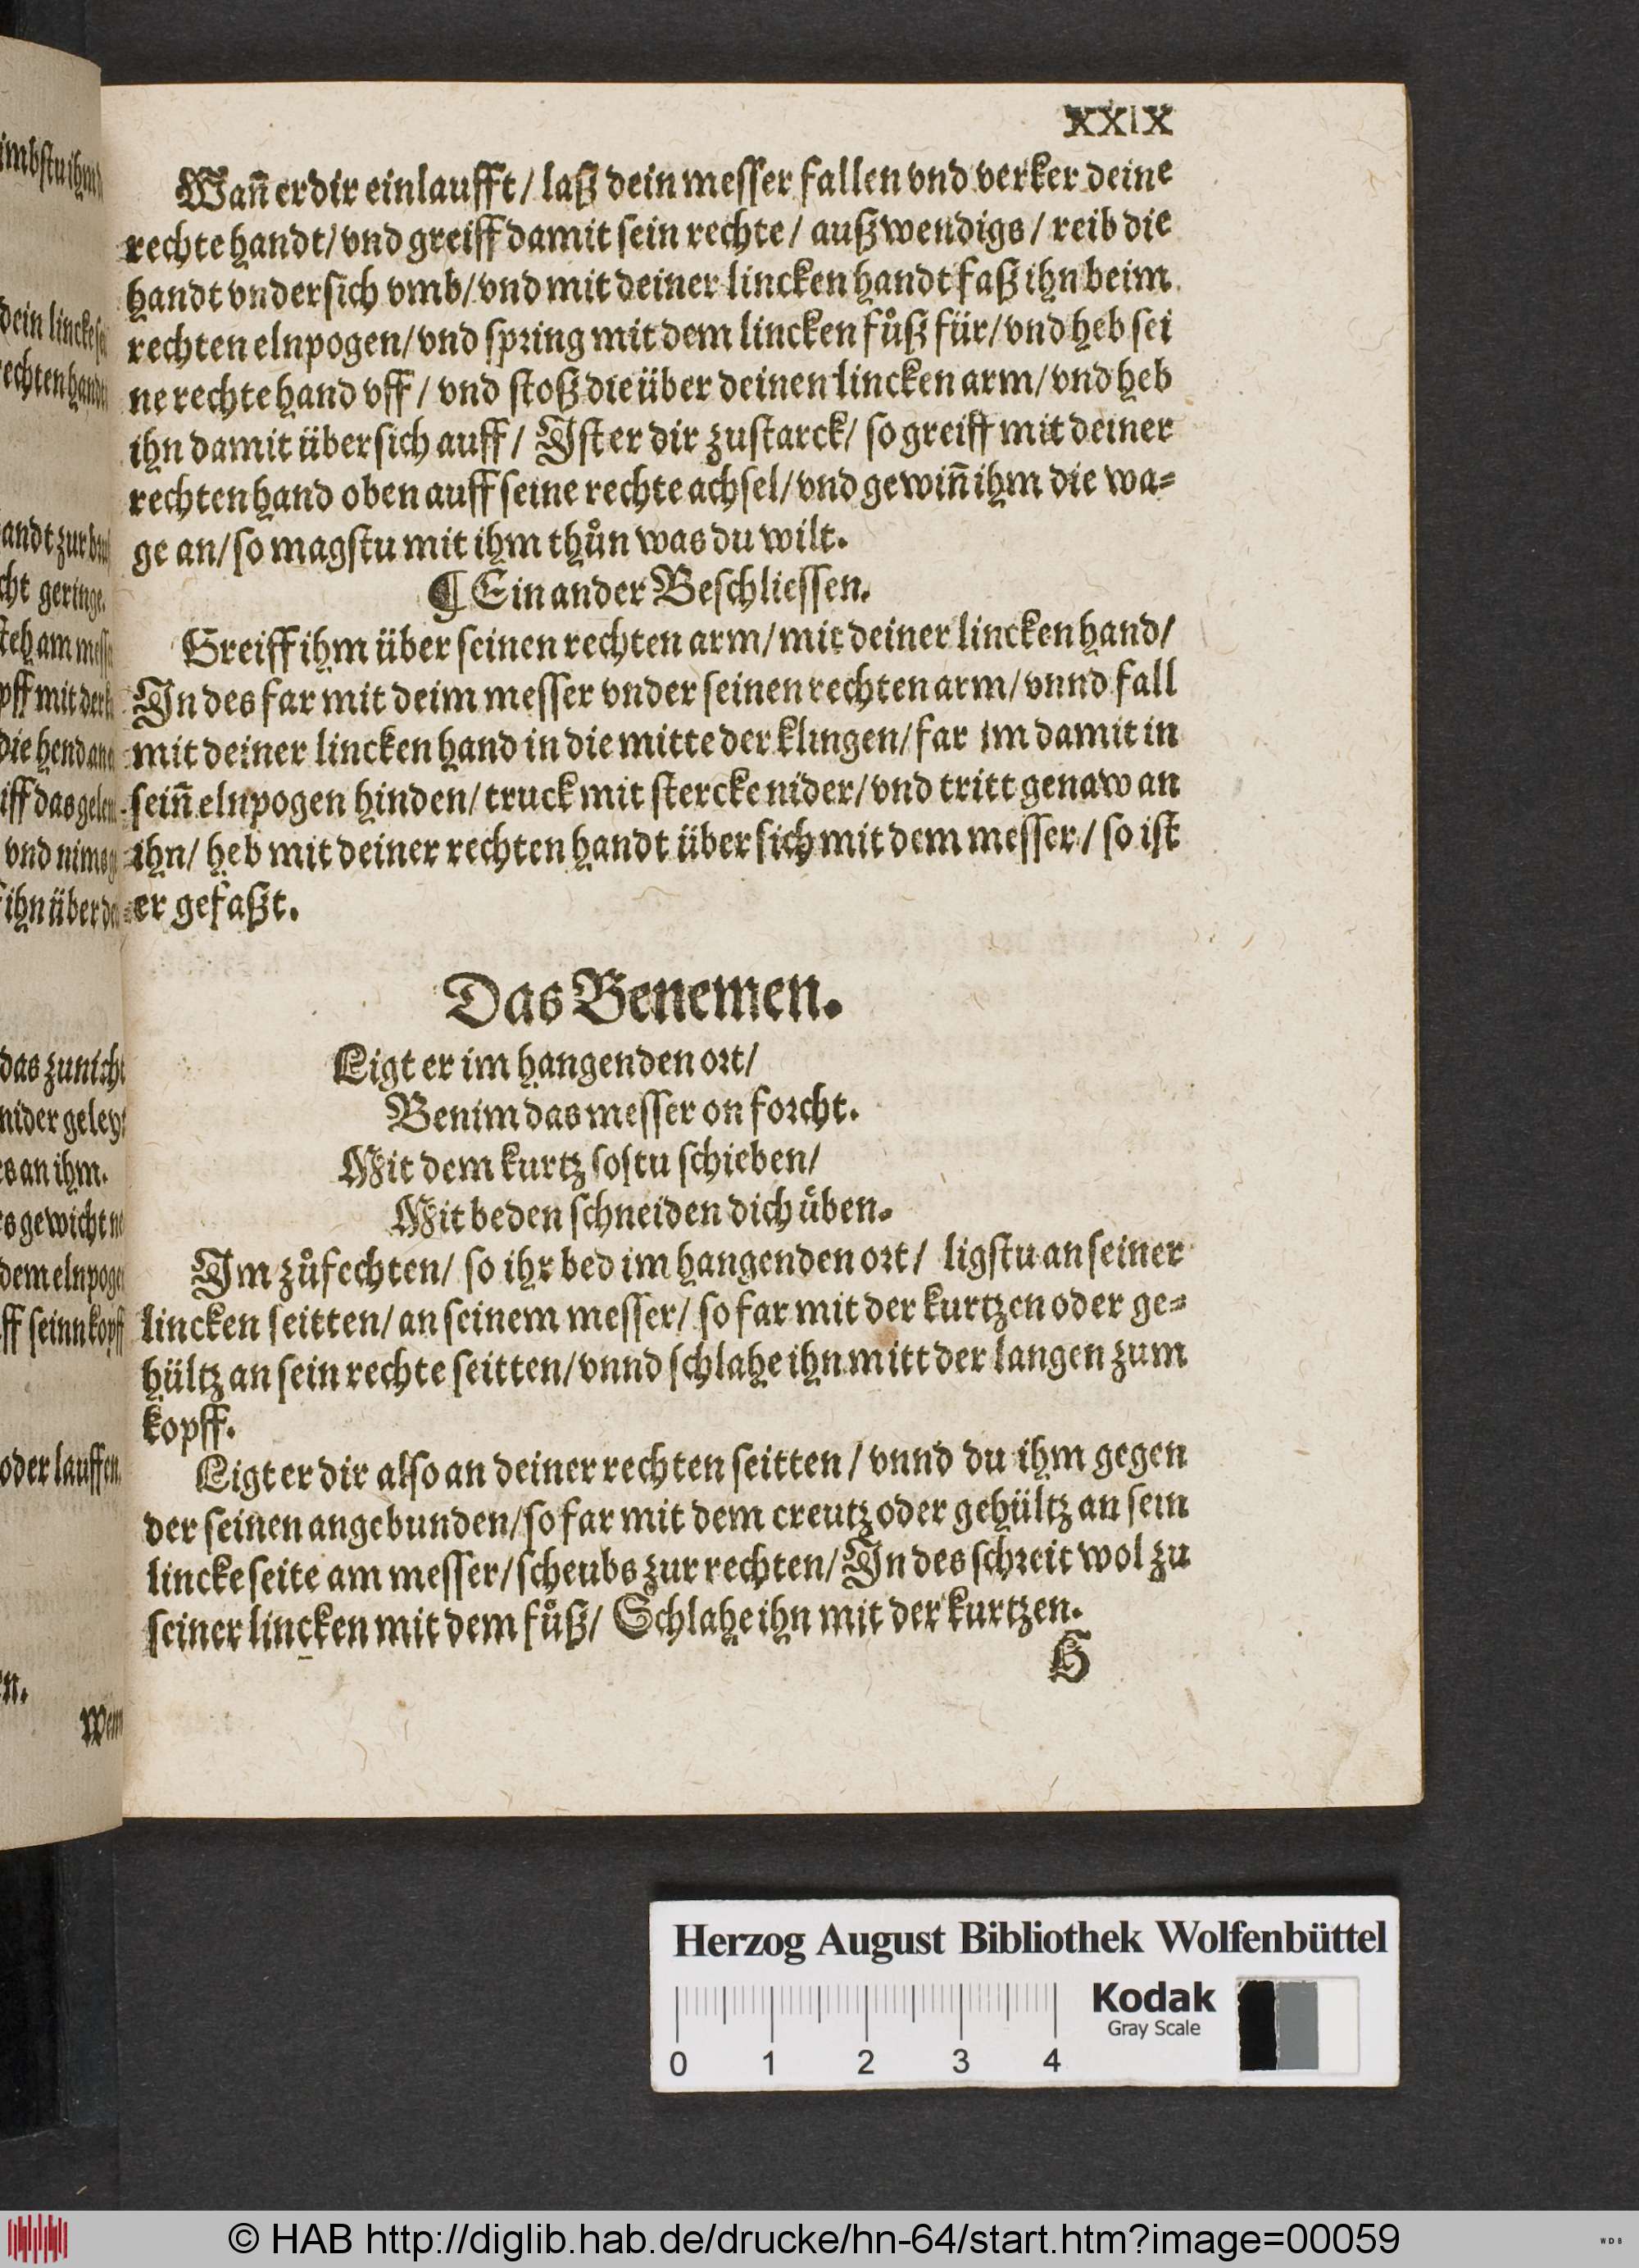 XXIX
Wañ er dir einlaufft / laß dein messer fallen vnd verker deine
rechte handt / vnd greiff damit sein rechte / außwendigs / reib die
handt vndersich vmb / vnd mit deiner lincken handt faß ihn beim
rechten elnpogen / vnd spring mit dem lincken fůß für / vnd heb sei
ne rechte hand vff / vnd stoß die über deinen lincken arm / vnd heb
ihn damit übersich auff / Ist er dir zustarck / so greiff mit deiner
rechten hand oben auff seine rechte achsel / vnd gewiñ ihm die wa=
ge an / so magstu mit ihm thůn was du wilt.
¶ Ein ander Beschliessen.
Greiff ihm über seinen rechten arm / mit deiner lincken hand /
In des far mit deim messer vnder seinen rechten arm / vnnd fall
mit deiner lincken hand in die mitte der klingen / far im damit in
seiñ elnpogen hinden / truck mit stercke nider / vnd tritt genaw an
ihn / heb mit deiner rechten handt übersich mit dem messer / so ist
er gefaßt.
Das Benemen.
Ligt er im hangenden ort /
Benim das messer on forcht.
Mit dem kurtz sostu schieben /
Mit beden schneiden dich üben.
Im zůfechten / so ihr bed im hangenden ort / ligstu an seiner
lincken seitten / an seinem messer / so far mit der kurtzen oder ge=
hültz an sein rechte seitten / vnnd schlahe ihn mitt der langen zum
kopff.
Ligt er dir also an deiner rechten seitten / vnnd du ihm gegen
der seinen angebunden / so far mit dem creutz oder gehültz an sein
lincke seite am messer / scheubs zur rechten / In des schreit wol zu
seiner lincken mit dem fůß / Schlahe ihn mit der kurtzen.
H
dein lincke
rechten
cht geringe.
das zunicht
nider geley
es an ihm.
gewicht
dem elnpoge
ff seinn kopff
oder lauffen
Herzog August Bibliothek Wolfenbüttel
Kodak
Gray Scale
0 1 2 3 4
© HAB http://diglib.hab.de/drucke/hn-64/start.htm?image=00059
WDB